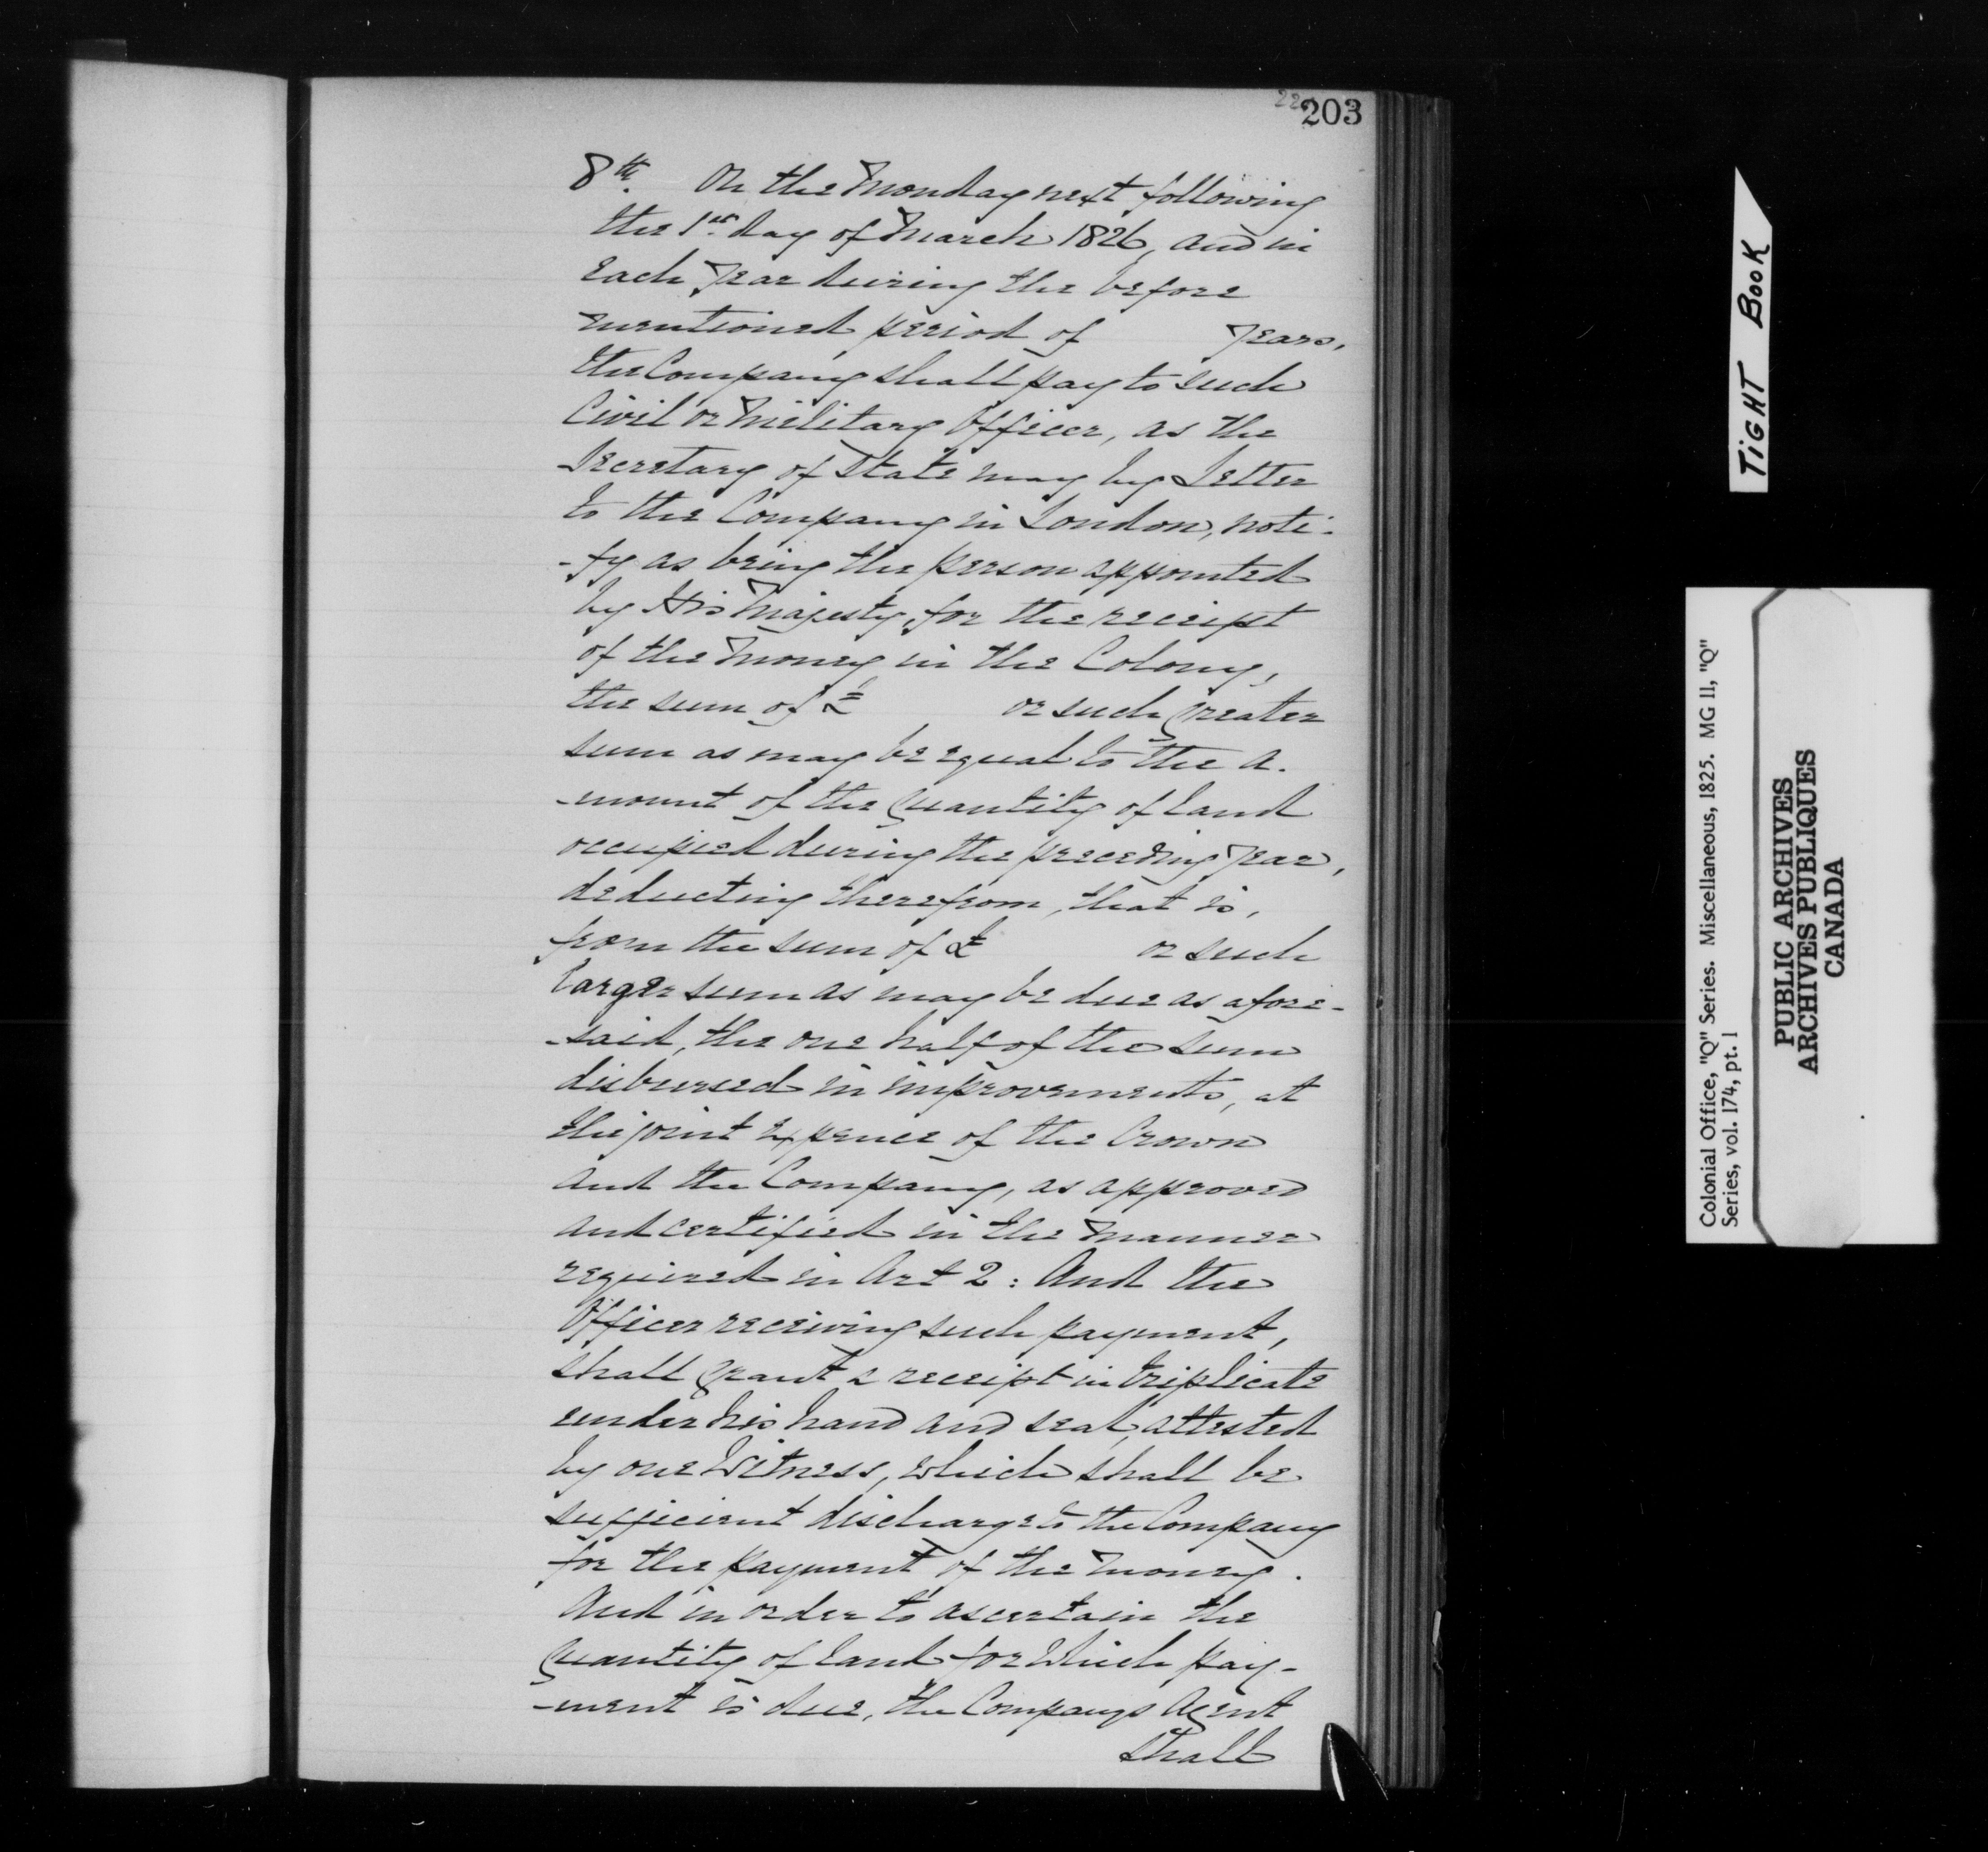 22
203
8th. On the Monday next following
the 1st day of March 1826, and in
Each Year during the before
mentioned period of Years,
the Company shall pay to such
Civil or Military Officer, as the
Secretary of State may by Letter
to the Company in London, noti-
-fy as being the person appointed
by His Majesty, for the receipt
of the Money in the Colony,
the sum of £ or such Greater
sum as may be equal to the a-
-mount of the Quantity of Land
occupied during the preceding Year,
deducting therefrom, that is,
from the sum of £ or such
larger sum as may be due as afore-
-said, the one half of the sum
disbursed in improvements, at
the joint expence of the Crown
and the Company, as approved
and certified in the Manner
required in Art 2: And the
Officer receiving such payment,
shall Grant a receipt in triplicate
under his hand and seal, attested
by one Witness, which shall be
sufficient discharge to the Company
for the payment of the Money.
And in order to ascertain the
Quantity of Land for which pay-
-ment is due, the Companys Agent
shall
TIGHT BOOK
Colonial Office, "Q" Series. Miscellaneous, 1825. MG 11, "Q"
Series, vol. 174, pt. 1
PUBLIC ARCHIVES
ARCHIVES PUBLIQUES
CANADA